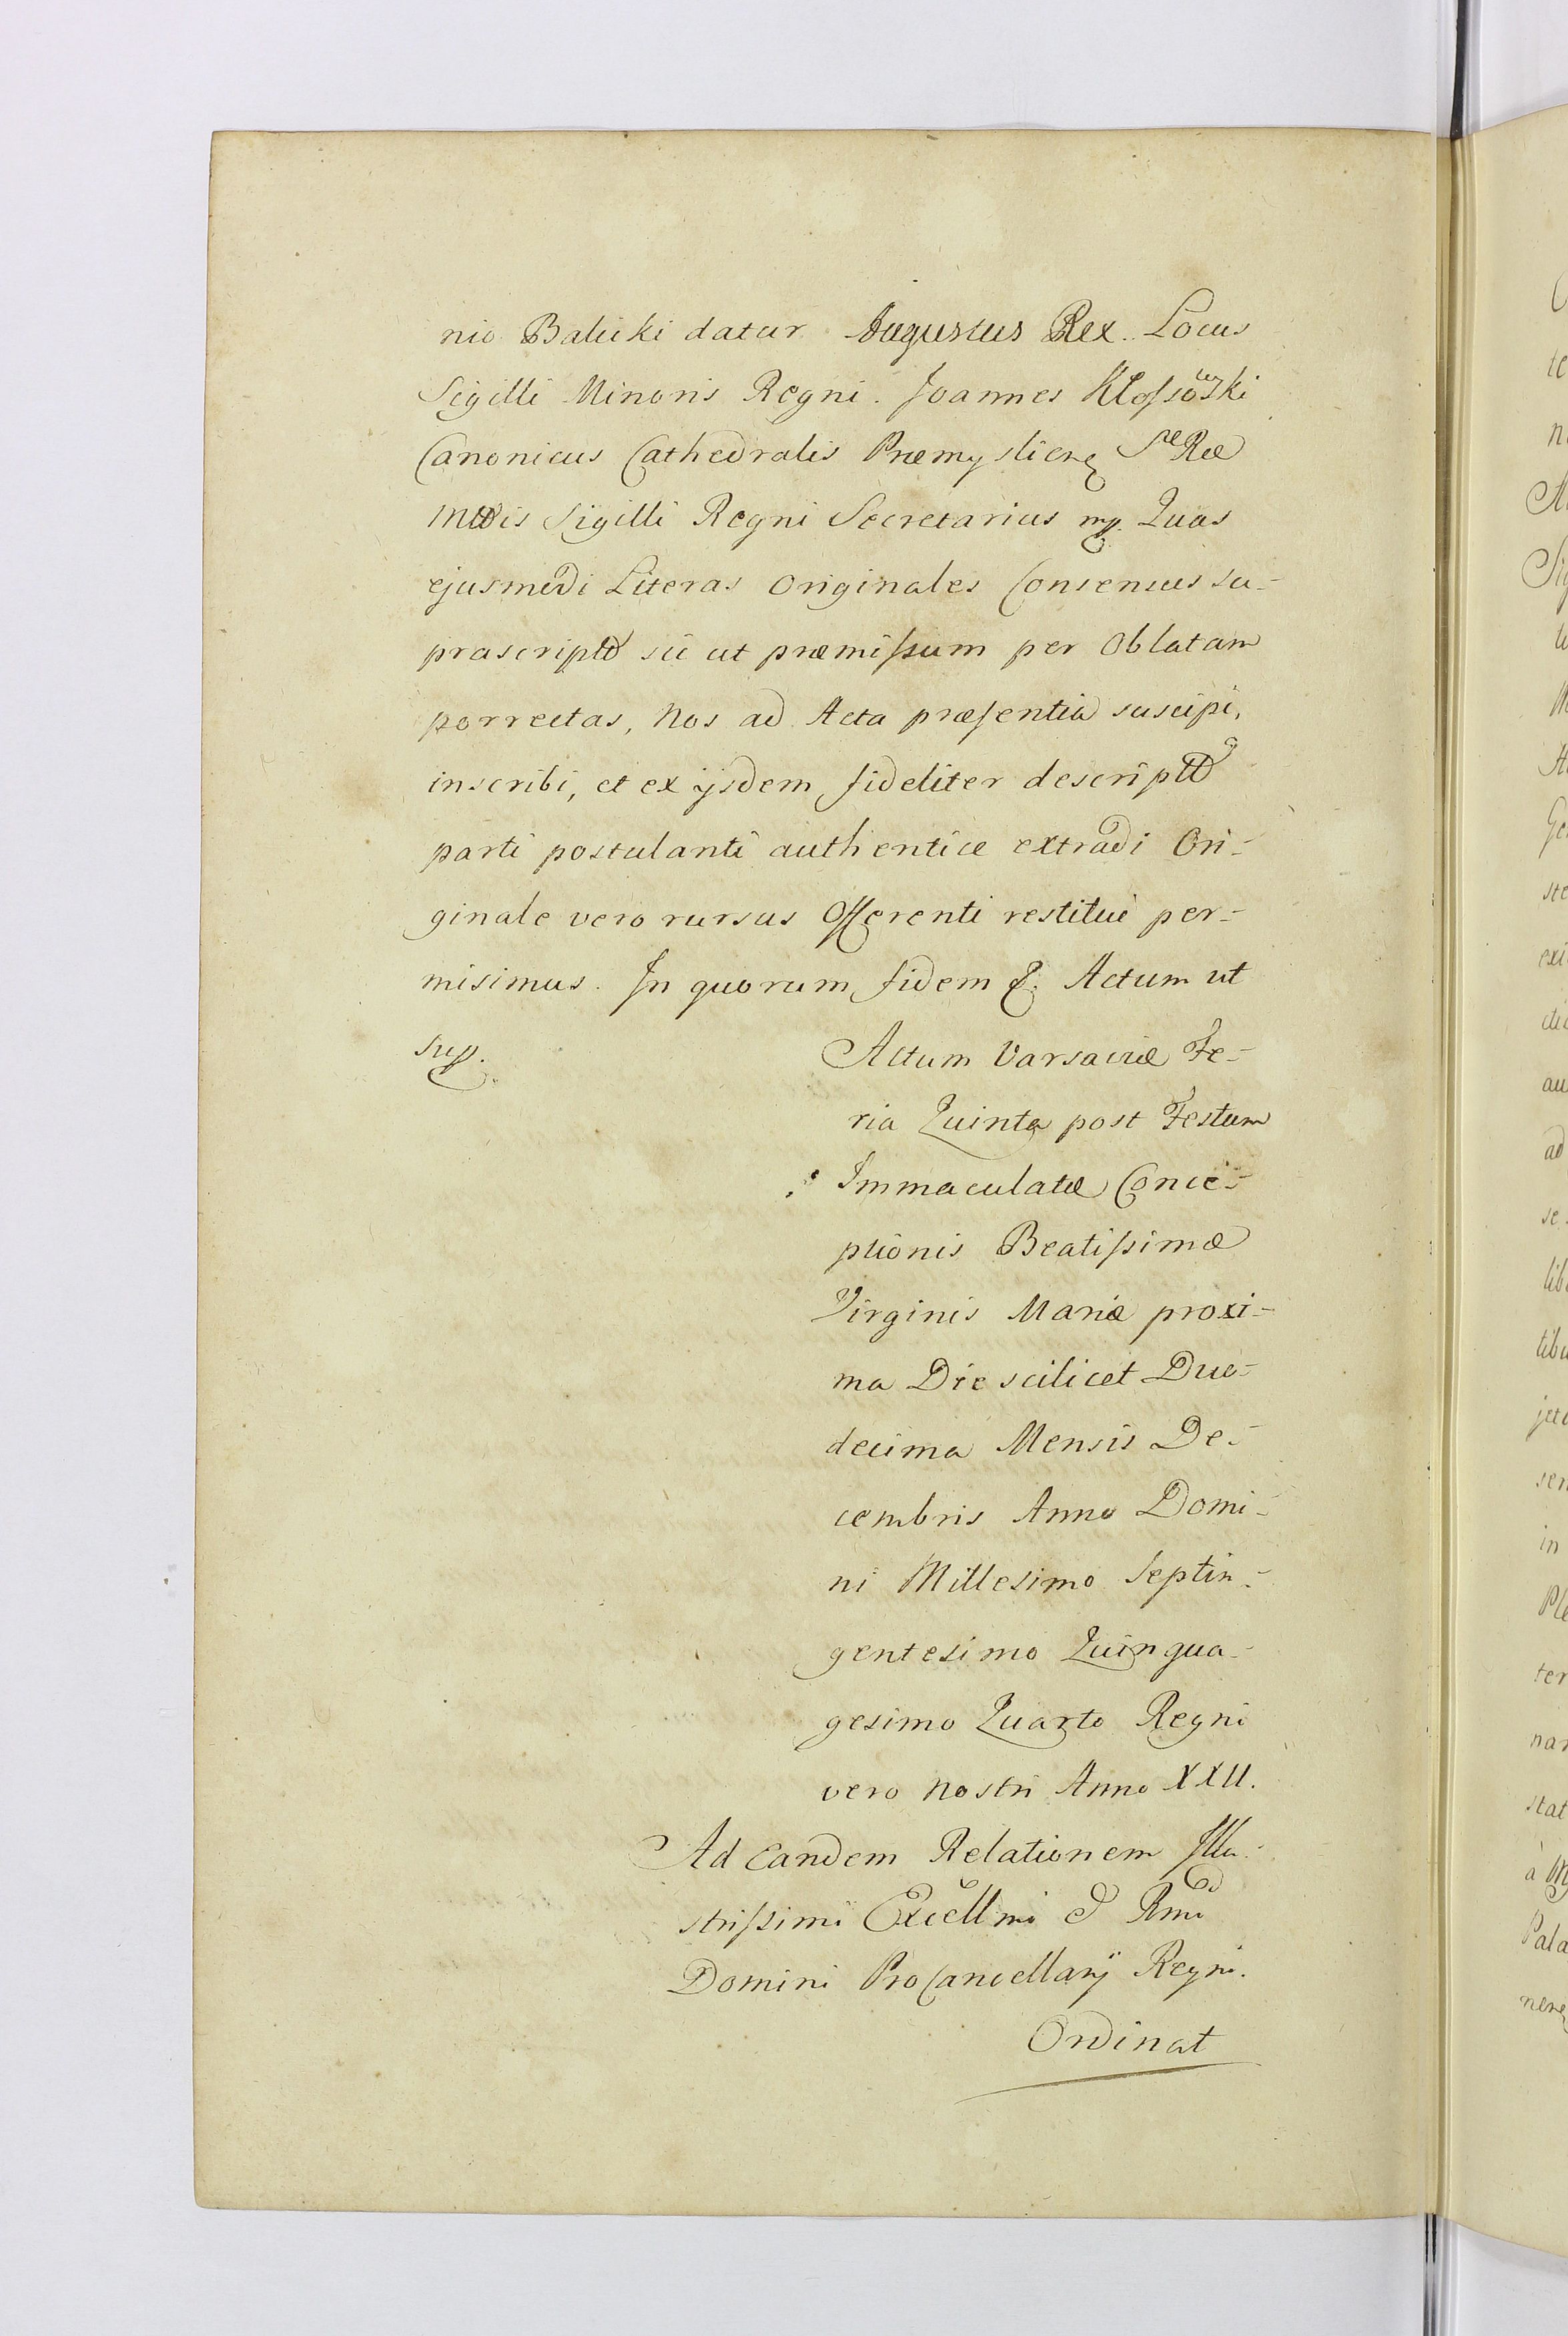 nio Balicki datur Augustus Rex. Locus
Sigilli Minoris Regni. Joannes Klossowski
Canonicus Cathedralis Præmyslien Sæ Ræ
Mttis Sigilli Regni Secretarius mp. Quas
ejusmodi Literas Originales Consensus su-
prascripto sic ut præmissum per Oblatam
porrectas, Nos ad Acta præsentia suscipi,
inscribi, et ex ijsdem fideliter descriptt
parti postulanti authentice extradi Ori-
ginale vero rursus Offerenti restitui per-
misimus. In quorum fidem &. Actum ut
sup.
Actum Varsaviæ Fe-
ria Quinta post Festum
Immaculatæ Conce-
ptionis Beatissimæ
Virginis Mariæ proxi-
ma Die scilicet Duo-
decima Mensis De-
cembris Anno Domi-
ni Millesimo Septin-
gentesimo Quinqua-
gesimo Quarto Regni
vero nostri Anno XXII.
Ad Eandem Relationem Illu-
strissimi Excellmi & Rmi
Domini ProCancellarij Regni.
Ordinat